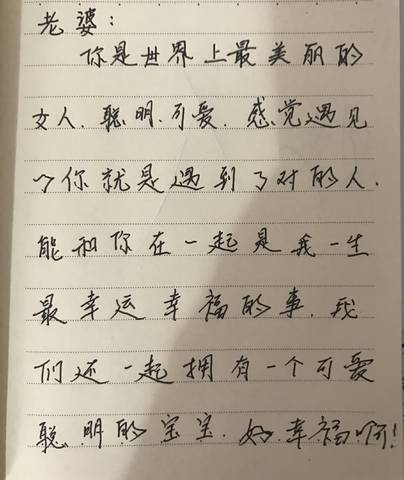 老婆：
你是世界上最美丽的
女人.聪明.可爱.感觉遇见
了你就是遇到了对的人.
能和你在一起是我一生
最幸运幸福的事.我
们还一起拥有一个可爱
聪明的宝宝.好幸福啊!